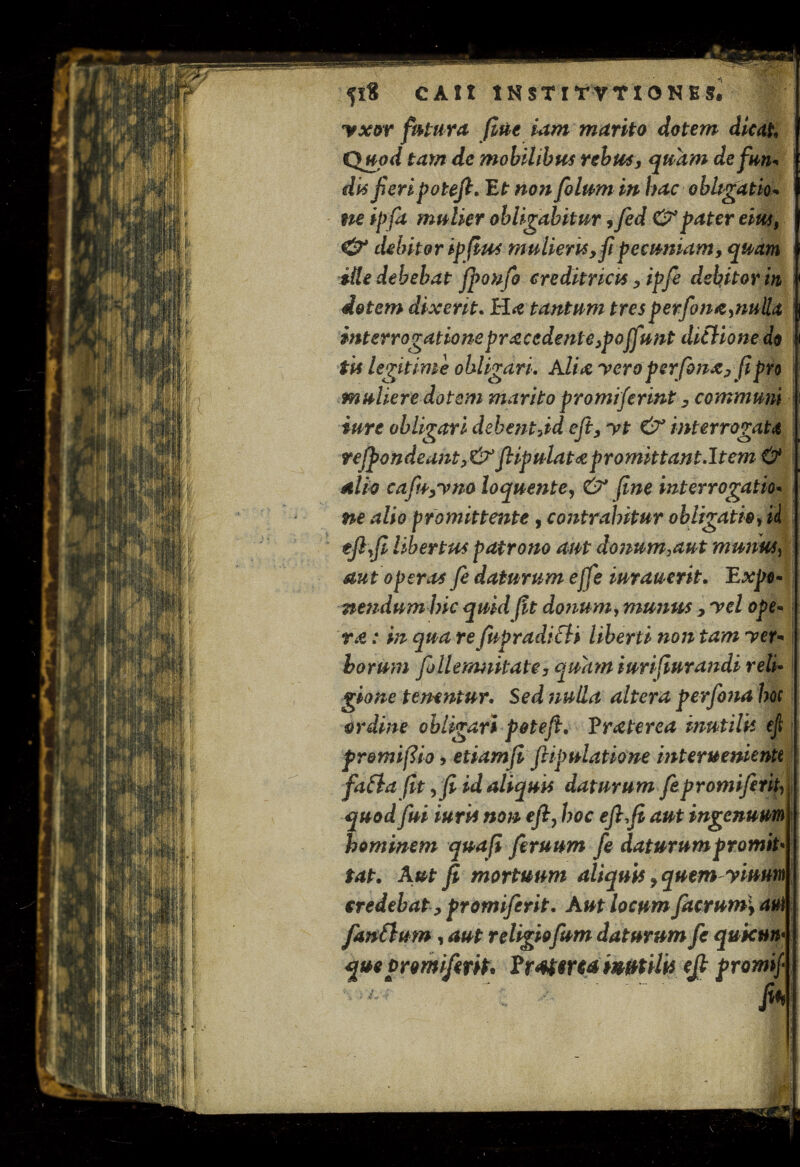 518 CAII INSTITVTIONES.
vxor futura siue iam marito dotem dicat.
Quod tam de mobilibus rebus, quàm de fun-
dis fieri potest. Et non solum in hac obligatio-
ne ipsa mulier obligabitur, sed & pater eius,
& debitor ipsius mulieris, si pecuniam, quam
ille debebat sponso creditricis, ipse debitor in
dotem dixerit. Hæ tantum tres personæ, nulla
interrogatione præcedente, possunt dictione do
tis legitimè obligari. Aliæ vero personæ, si pro
muliere dotem marito promiserint, communi
iure obligari debent, id est, vt & interrogata
respondeant, & stipulatæ promittant. Item &
alio casu, vno loquente, & sine interrogatio-
ne alio promittente, contrahitur obligatio, id
est, si libertus patrono aut donum, aut munus,
aut operas se daturum esse iurauerit. Expo-
nendum hic quid sit donum, munus, vel ope-
ræ: in qua re supradicti liberti non tam ver-
borum sollemnitate, quàm iurisiurandi reli-
gione tenentur. Sed nulla altera persona hoc
ordine obligari potest. Præterea inutilis est
promissio, etiamsi stipulatione interueniente
facta sit, si id aliquis daturum se promiserit,
quod sui iuris non est, hoc est, si aut ingenuum
hominem quasi seruum se daturum promit-
tat. Aut si mortuum aliquis, quem viuum
credebat, promiserit. Aut locum sacrum, aut
sanctum, aut religiosum daturum se quicun-
que promiserit. Præterea inutilis est promis-
sio,